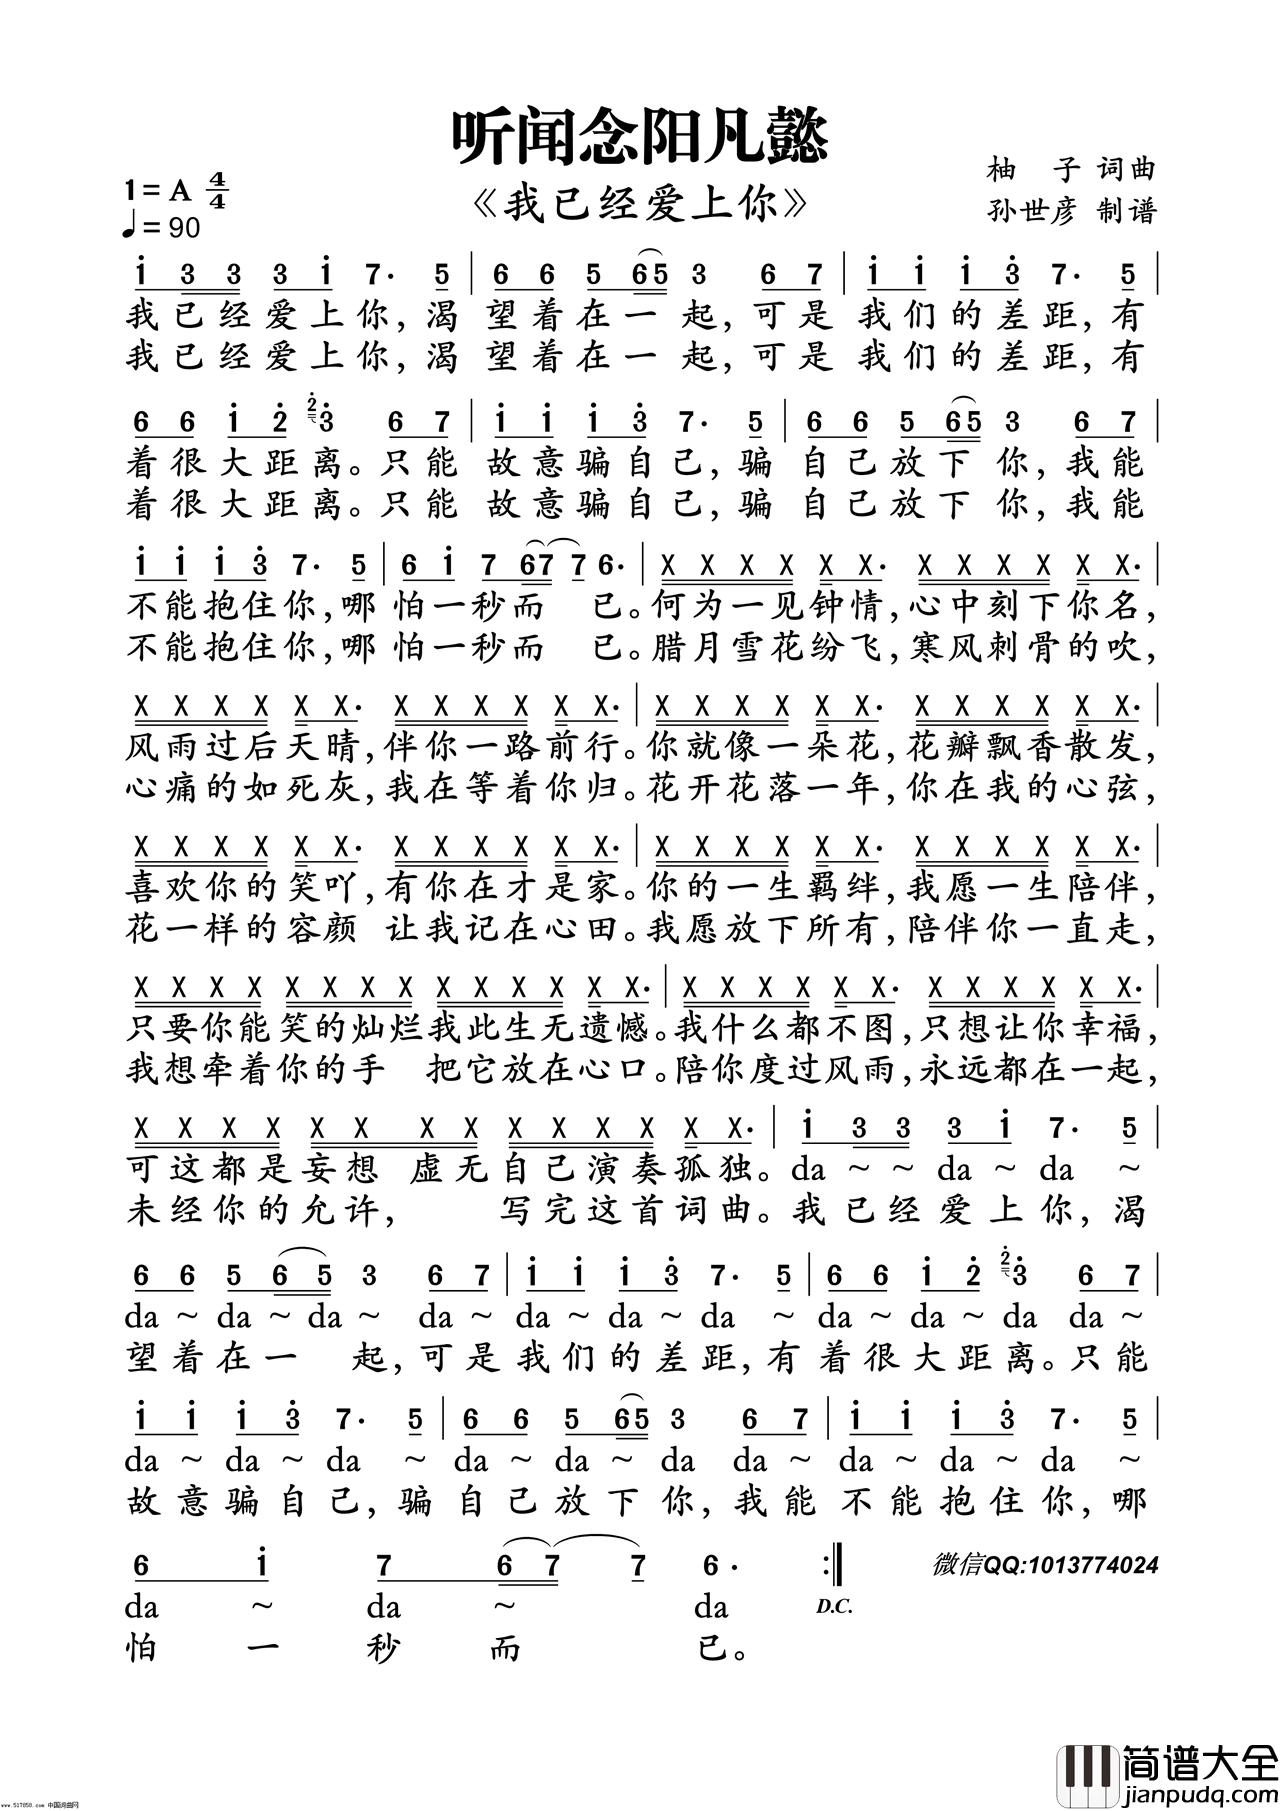 听闻念阳凡懿
《我已经爱上你》
1=A 4/4
♩=90
柚 子 词曲
孙世彦 制谱
i 3 3 3 i 7· 5 | 6 6 5 6 5 3 6 7 | i i i 3̇ 7· 5 |
我已经爱上你,渴 望着在一 起,可是 我们的差距,有
我已经爱上你,渴 望着在一 起,可是 我们的差距,有
6 6 i 2̇ 2̇ 3̇ 6 7 | i i i 3̇ 7· 5 | 6 6 5 6 5 3 6 7 |
着很大距离。只能 故意骗自己,骗 自己放下 你,我能
着很大距离。只能 故意骗自己,骗 自己放下 你,我能
i i i 3̇ 7· 5 | 6 i 7 6 7 7 6· | X X X X X X· X X X X X X· |
不能抱住你,哪 怕一秒而 已。何为一见钟情,心中刻下你名,
不能抱住你,哪 怕一秒而 已。腊月雪花纷飞,寒风刺骨的吹,
X X X X X X· X X X X X X· | X X X X X X· X X X X X X· |
风雨过后天晴,伴你一路前行。你就像一朵花,花瓣飘香散发,
心痛的如死灰,我在等着你归。花开花落一年,你在我的心弦,
X X X X X X· X X X X X X· | X X X X X X· X X X X X X· |
喜欢你的笑吖,有你在才是家。你的一生羁绊,我愿一生陪伴,
花一样的容颜 让我记在心田。我愿放下所有,陪伴你一直走,
X X X X X X X X X X X X X X· | X X X X X X· X X X X X X· |
只要你能笑的灿烂我此生无遗憾。我什么都不图,只想让你幸福,
我想牵着你的手 把它放在心口。陪你度过风雨,永远都在一起,
X X X X X X X X X X X X X X· | i 3 3 3 i 7· 5 |
可这都是妄想 虚无自己演奏孤独。da ~ ~ da ~ da ~
未经你的允许, 写完这首词曲。我已经爱上你,渴
6 6 5 6 5 3 6 7 | i i i 3̇ 7· 5 | 6 6 i 2̇ 2̇ 3̇ 6 7 |
da ~ da ~ da ~ da ~ da ~ da ~ da ~ da ~ da ~ da da ~
望着在一 起,可是我们的差距,有着很大距离。只能
i i i 3̇ 7· 5 | 6 6 5 6 5 3 6 7 | i i i 3̇ 7· 5 |
da ~ da ~ da ~ da ~ da ~ da da ~ da ~ da ~ da ~
故意骗自己,骗自己放下你,我能不能抱住你,哪
6 i 7 6 7 7 6· :‖
da ~ da ~ da D.C.
怕 一 秒 而 已。
微信QQ:1013774024
简谱大全
jianpudq.com
www.517050.com 中国词曲网